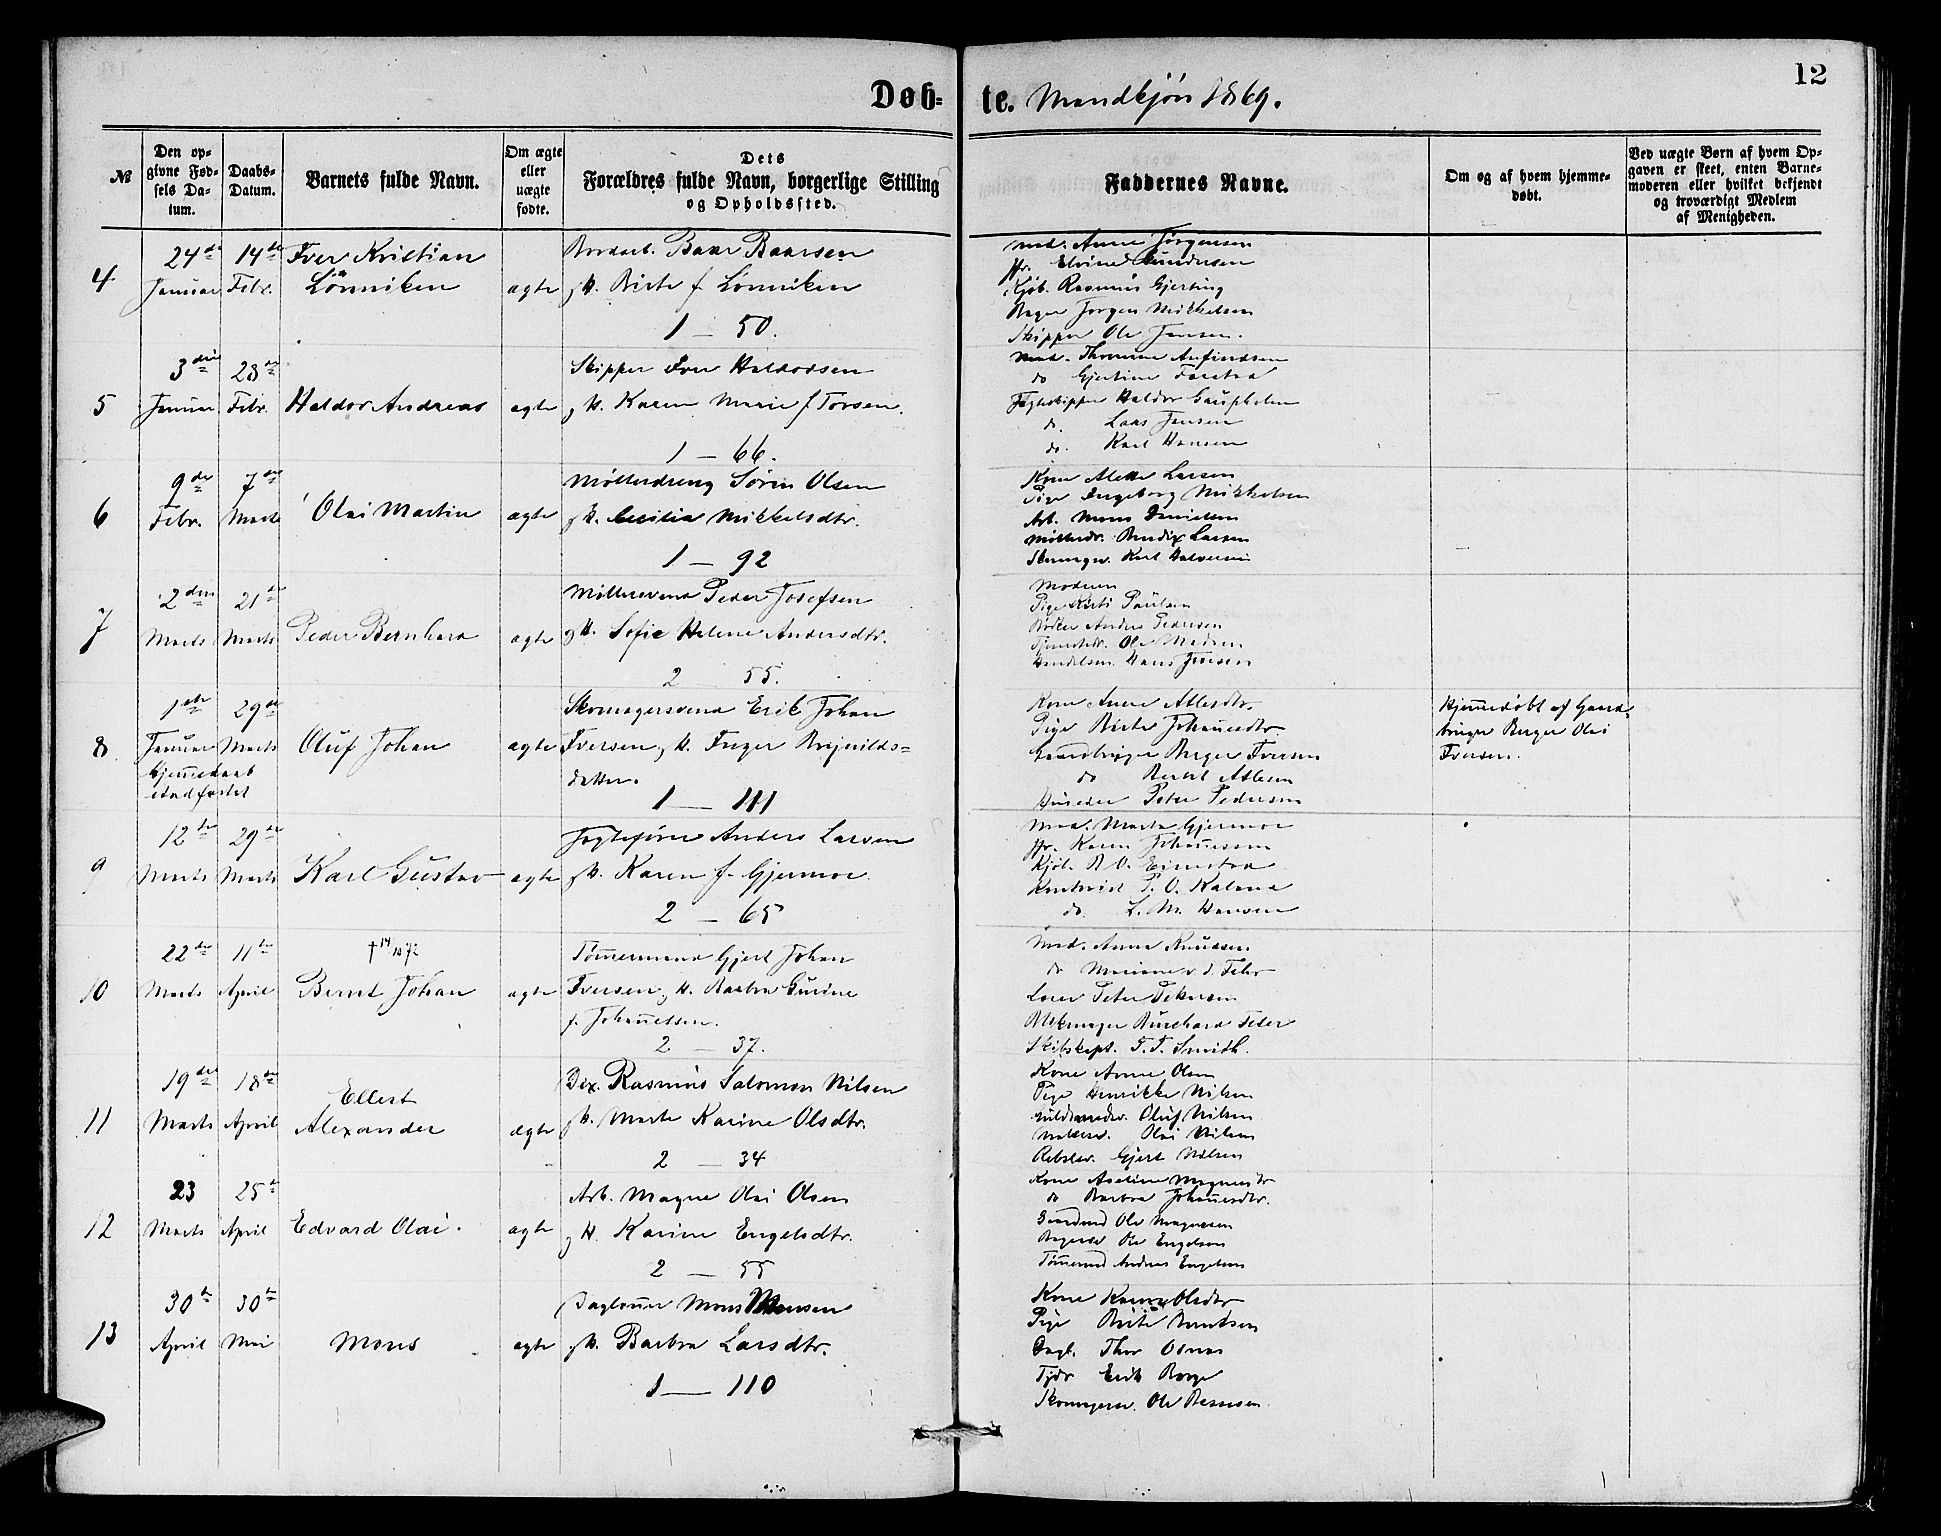 12
Døb- te. Mandkjön 1869.
№
Den opgivne Fødsels Datum.
Daabs-Datum.
Barnets fulde Navn.
Om ægte eller uægte fødte.
Dets Forældres fulde Navn, borgerlige Stilling og Opholdssted.
Faddernes Navne.
Om og af hvem hjemmedøbt.
Ved uægte Børn af hvem Opgaven er skeet, enten Barnemoderen eller hvilket bekjendt og troværdigt Medlem af Menigheden.
4
24de Januar
14de Febr.
Iver Kristian
Lönniken
ægte
Baar Baarsen
og H. Birte f. Lonniken
1 — 50.
Mad. Anne Jörgensen
Jfr. Elvine Gundersen
Kjöb. Rasmus Gjerting
Bager Jörgen Mikkelsen
Skipper Ole Jensen.
5
3die Januar
28de Febr.
Haldor Andreas
ægte
Skipper Iver Haldorsen
og H. Karen Marie f. Torsen.
1 — 66.
Mad. Thomine Anfindsen
do Gjertine
Jagteskipper Haldor
do. Lars Jensen
do. Karl Hansen
6
9de Febr.
7de Marts
Olai Martin
ægte
Møllerdreng Sören Olsen
og H. Cecilia Mikkelsdtr.
1 — 92
Kone Alette Larsen
Pige Ingeborg Mikkelsen
Arb. Mons Danielsen
Møllerdr. Bendix Larsen
Skomagersv. Karl Halvorsen
7
2den Marts
21de Marts
Peder Bernhard
ægte
Møllersvend Peder Josefsen
og H. Sofie Helene Andersdtr.
2 55.
Moderen
Pige Kirsti Paulsen
Bödker Anders Pedersen
Tjenestedr. Ole Madsen
Handelsm. Hans Jensen
8
1ste Januar
hjemmedaab
stadfæstet
29de Marts
Oluf Johan
ægte
Skomagersvend Erik Johan
Iversen og H. Inger Brynilds=
datter.
1 — 111
Kone Anne Atlesdtr.
Pige Birte Johannesdtr.
Gaardbruger Berger Iversen
do Bernt Atlesen
Huseier Peter Pedersen
Hjemmedøbt af Gaard-
bruger Berger Olai
Iversen.
9
12te Marts
29de Marts
Karl Gustav
ægte
Jagtefører Anders Larsen
og H. Karen f. Gjermoe.
2 — 65
Mad. Marta Gjermoe
Jfr. Karen Johannessen
Kjöb. R. O.
P. O. Kaland
do. L. M. Hansen
10
22de Marts
11te April
† 14/10 72
Bernt Johan
ægte
Tömmermand Gjert Johan
Iversen og H. Barbra Gurine
f. Johannessen.
2 — 37.
Mad. Anna Knudsen.
do Mariane v. d. Fehr
Lærer Peter Pedersen
Blokmager Burchard Feser
Skibskapt. T. T. Smith.
11
19de Marts
18de April
Ellert
Alexander
ægte
Rasmus Salomon Nilsen
og H. Marte Karine Olsdtr.
2 — 34
Kone Anne Olsen
Pige Henrikke Nilsen
Guldsmedsv. Oluf Nilsen
Olai Nilsen
Rebslag. Gjert Nilsen
12
23 Marts
25de April
Edvard Olai.
ægte
Arb. Magne Olai Olsen
og H. Karine Engelsdtr.
2 — 55
Kone Axeline Magnesdtr
do Barbra Johannesdtr.
Gaardmd Ole Magnesen
Bagersv. Ole Engelsen
Tömmermd Andreas Engelsen
13
30te April
30te Mai
Mons
ægte
Daglönner Mons Monsen
og H. Barbra Larsdtr.
1 — 110
Kone Karine Olsdtr
Pige Birte Berntsen
Dagl. Thor
Tjdr Erik Borge
Skomagersv. Ole